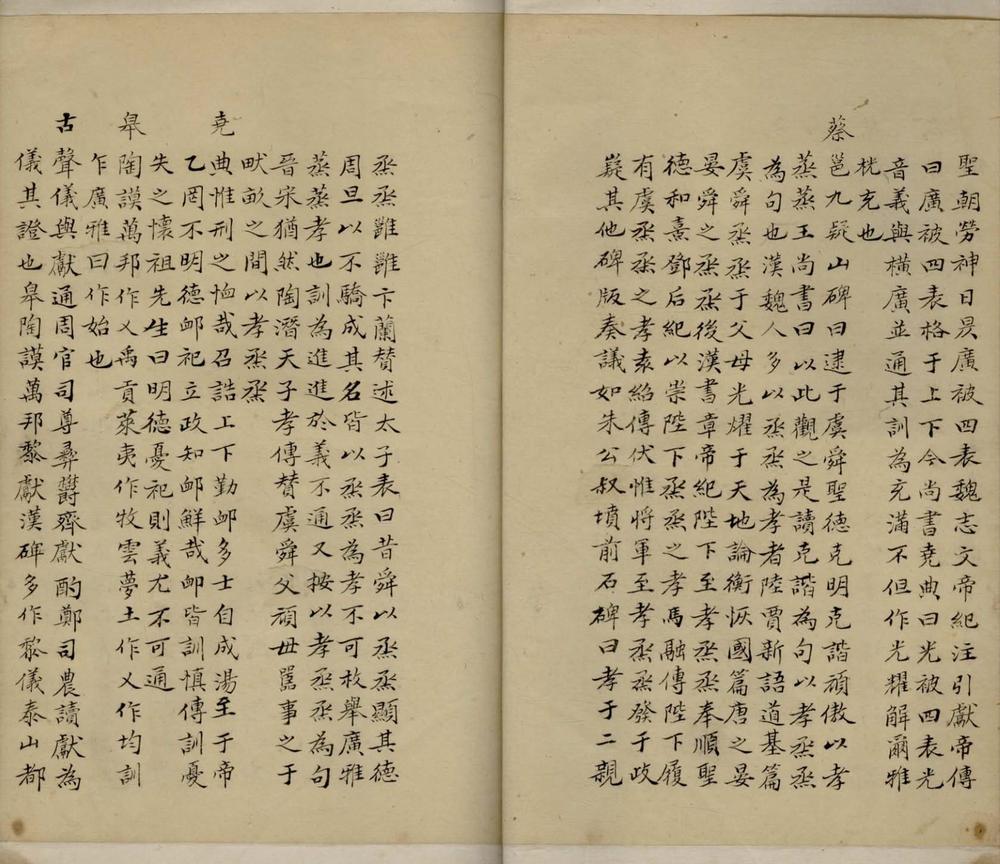 聖朝勞神日昃廣被四表魏志文帝紀注引獻帝傳
曰廣被四表格于上下今尚書堯典曰光被四表光
音義與橫廣並通其訓為充滿不但作光耀解爾雅
桄充也
蔡邕九疑山碑曰逮于虞舜聖德克明克諧頑傲以孝
蒸蒸王尚書曰以此觀之是讀克諧為句以孝烝烝
為句也漢魏人多以烝烝為孝者陸賈新語道基篇
虞舜烝烝于父母光燿于天地論衡恢國篇唐之晏
晏舜之烝烝後漢書章帝紀陛下至孝烝烝奉順聖
德和熹鄧后紀以崇陛下烝烝之孝馬融傳陛下履
有虞烝烝之孝袁紹傳伏惟將軍至孝烝烝發于岐
嶷其他碑版奏議如朱公叔墳前石碑曰孝于二親
烝烝雝雝卞蘭贊述太子表曰昔舜以烝烝顯其德
周旦以不驕成其名皆以烝烝為孝不可枚舉廣雅
蒸蒸孝也訓為進進於義不通又按以孝烝烝為句
晉宋猶然陶潛天子孝傳贊虞舜父頑母嚚事之于
畎畝之間以孝烝烝
堯典惟刑之恤哉召誥上下勤卹多士自成湯至于帝
乙罔不明德卹祀立政知卹鮮哉卹皆訓慎傳訓憂
失之懷祖先生曰明德憂祀則義尤不可通
皋陶謨萬邦作乂禹貢萊夷作牧雲夢土作乂作均訓
乍廣雅曰作始也
古聲儀與獻通周官司尊彝鬱齊獻酌鄭司農讀獻為
儀其證也皋陶謨萬邦黎獻漢碑多作黎儀泰山都